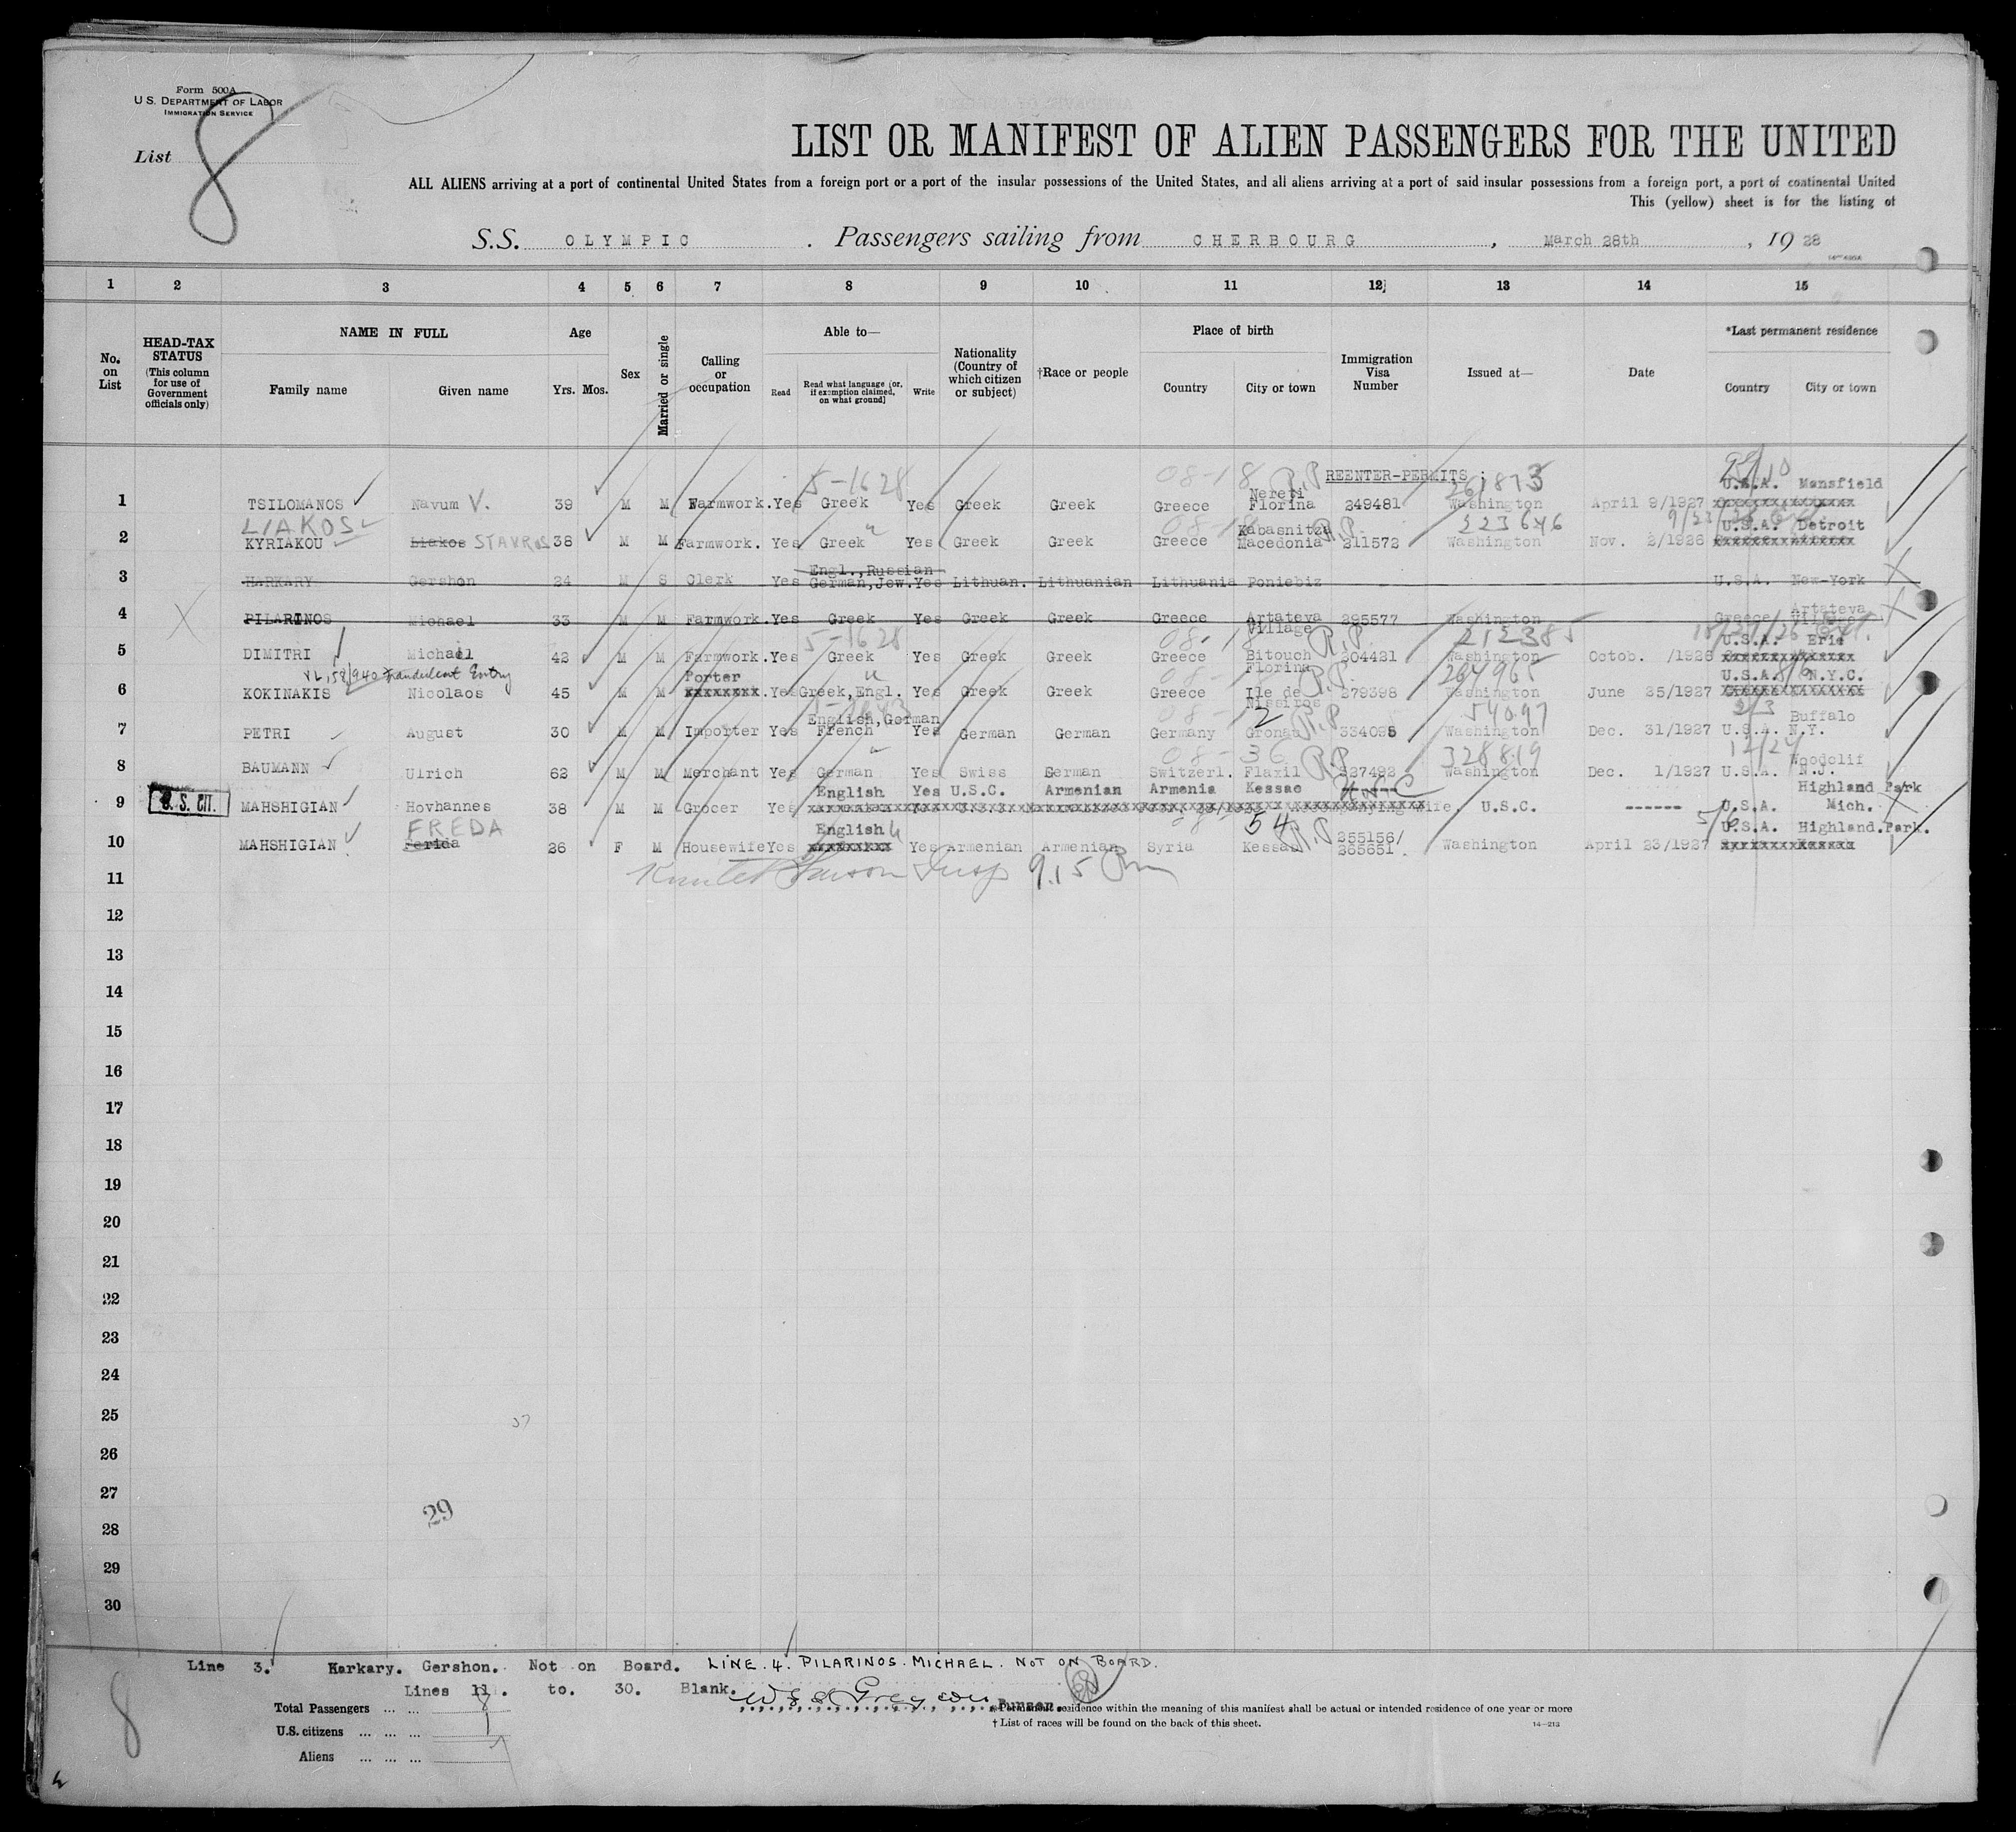 Form 500A
U. S. DEPARTMENT OF LABOR
IMMIGRATION SERVICE
List 8
LIST OR MANIFEST OF ALIEN PASSENGERS FOR THE UNITED
ALL ALIENS arriving at a port of continental United States from a foreign port or a port of the insular possessions of the United States, and all aliens arriving at a port of said insular possessions from a foreign port, a port of continental United
This (yellow) sheet is for the listing of
S.S. OLYMPIC . Passengers sailing from CHERBOURG , March 28th , 19 28
1 2 3 4 5 6 7 8 9 10 11 12 13 14 15
No. on List
HEAD-TAX STATUS (This column for use of Government officials only)
NAME IN FULL
Family name Given name
Age
Yrs. Mos.
Sex
Married or single
Calling or occupation
Able to—
Read Read what language [or, if exemption claimed, on what ground] Write
Nationality (Country of which citizen or subject)
†Race or people
Place of birth
Country City or town
Immigration Visa Number
Issued at—
Date
*Last permanent residence
Country City or town
5-1628 08-18 R.P REENTER-PERMITS ; 261873
1 TSILOMANOS Navum V. 39 M M Farmwork. Yes Greek Yes Greek Greek Greece Nereti Florina 249481 Washington April 9/1927 U.S.A. Mansfield
LIAKOS
2 KYRIAKOU Liakos STAVROS 38 M M Farmwork. Yes Greek Yes Greek Greek Greece Kabasnitza Macedonia R.P. 211572 223646 Washington Nov. 2/1926 U.S.A. Detroit
3 HARKARY Gershon 24 M S Clerk Yes Engl.,Russian German,Jew. Yes Lithuan. Lithuanian Lithuania Poniebiz U.S.A. New-York
4 PILARINOS Michael 33 M M Farmwork. Yes Greek Yes Greek Greek Greece Artateva Village 295577 Washington Greece Artateva Village
5-1628 08-18 R.P. 212385
5 DIMITRI Michael 42 M M Farmwork. Yes Greek Yes Greek Greek Greece Bitouch Florina 204421 Washington Octob. /1926 U.S.A. Erie
VL,58/940 Fraudulent Entry
6 KOKINAKIS Nicolaos 45 M M Porter Yes Greek,Engl. Yes Greek Greek Greece Ile de Nissiros R.P. 279398 264965 Washington June 25/1927 U.S.A. N.Y.C. 8/6
7 PETRI August 30 M M Importer Yes English,German French Yes German German Germany Gronau R.P 334098 54097 Washington Dec. 31/1927 U.S.A. Buffalo N.Y. 2/3
8 BAUMANN Ulrich 62 M M Merchant Yes German Yes Swiss German Switzerl. Flaxil 08-36 R.P. 327492 328819 Washington Dec. 1/1927 U.S.A. Woodclif N.J. 12/24
9 U. S. CIT. MAHSHIGIAN Hovhannes 38 M M Grocer Yes English Yes U.S.C. Armenian Armenia Kessac U.S.C Accompanying wife, U.S.C. ------ U.S.A. Highland Park Mich.
FREDA
10 MAHSHIGIAN Ferida 26 F M Housewife Yes English Yes Armenian Armenian Syria Kessab 54 R.P 255156/ 265651 Washington April 23/1927 5/6 U.S.A. Highland.Park.
11 Insp 9.15 Pm
12
13
14
15
16
17
18
19
20
21
22
23
24
25
26
27
28
29
30
29
Line 3. Harkary. Gershon. Not on Board. LINE. 4. PILARINOS. MICHAEL. NOT ON BOARD.
Lines 11. to. 30. Blank.
Purser.
Total Passengers ... ... 8
U.S. citizens ... ... ... 1
Aliens ... ... ... 7
8
*Permanent residence within the meaning of this manifest shall be actual or intended residence of one year or more
† List of races will be found on the back of this sheet.
14—213